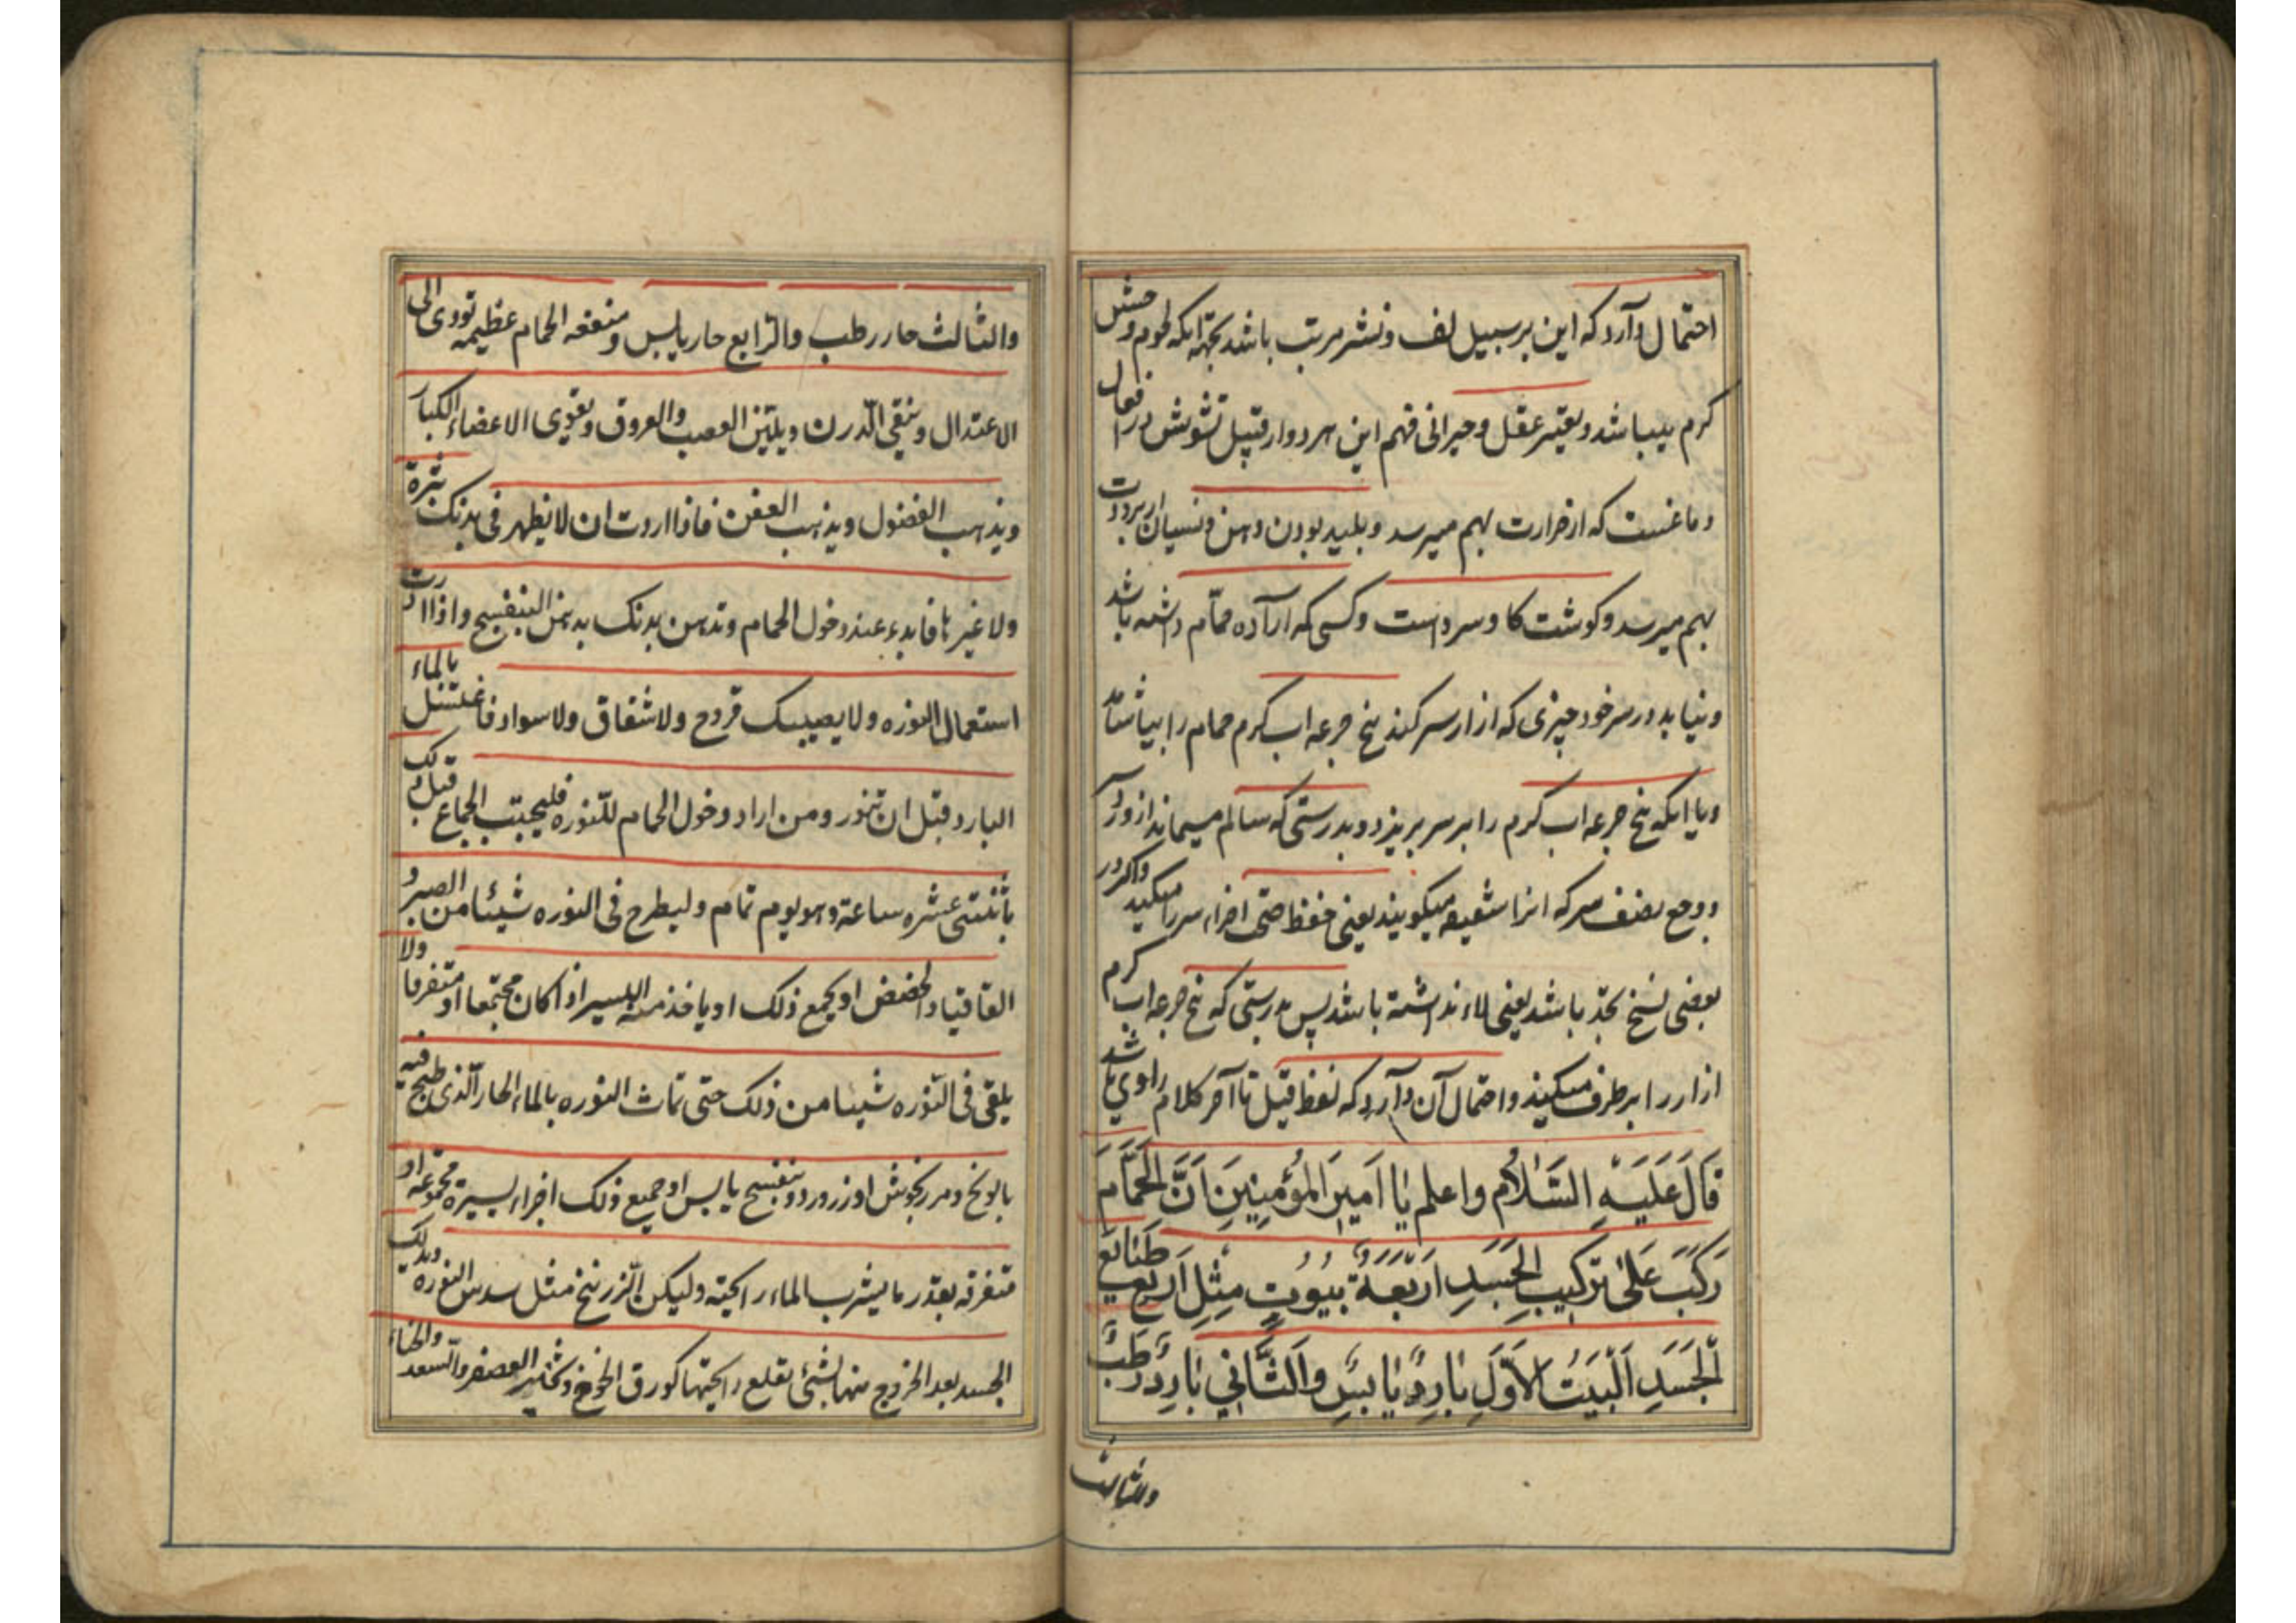 احتمال دارد که این بر سبیل لف و نشر مرتب باشد بجهة آنکه لحوم وحش
کرم میباشد و تغیر عقل و حیرانی فهم این هر دو از قبیل تشویش در افعال
دماغست که از حرارت بهم میرسد و بلید بودن ذهن و نسیان از برودت
بهم میرسد و کوشت کاو سرد است و کسی که اراده حمام داشته باشد
و نیابد در سر خود چیزی که ازار سر کند پنج جرعه اب کرم حمام را بیاشامد
و یا انکه پنج جرعه اب کرم را بر سر بریزد و بدرستی که سالم میماند از درد سر
و وجع نصف سر که انرا شقیقه میکویند یعنی حفظ صحتی اجزاء سر را میکند و اکر در
بعضی نسخ تجد باشد یعنی لاء نداشته باشد پس بدرستی که پنج جرعه اب کرم
ازار را بر طرف میکند و احتمال آن دارد که لفظ قیل تا آخر کلام راوی باشد
قَالَ عَلَيْهِ السَّلَامُ و اعلم يَا اَمِيرَ المُؤْمِنِينَ اَنَّ الحَمَّامَ
رُكِّبَ عَلَى تَرْكِيبِ الجَسَدِ اَرْبَعَةُ بُيُوتٍ مِثْلِ اَربَعِ طَبَائِعِ
الْجَسَدِ اَلْبَيْتُ الاَوَّلُ بَارِدٌ يَابِسٌ وَالثَّانِي بَارِدٌ رَطبٌ
والثالث
والثالث حار رطب والرّابع حار یابس و منفعه الحمام عظیمه تودی الی
الاعتدال و ینقی الّدرن و یلیّن العصب والعروق و یقوّی الاعضاء الکبار
و یذهب الفضول و یذهب العفن فاذا اردت ان لا یظهر فی بدنک بثرة
ولا غیرها فابدء عند دخول الحمام و تدهن بدنک بدهن البنفسج و اذا اردت
استعمال النوره ولا یصیبک قروح ولا شقاق ولا سواد فاغتسل بالماء
البارد قبل ان تنور و من اراد دخول الحمام للنّوره فلیجتنب الجماع قبل ذلک
باثنتی عشره ساعة و هو یوم تمام و لیطرح فی النوره شیئا من الصبر و
القاقیا و الحضض او یجمع ذلک او یاخذ منه الیسیر اذا کان مجتمعا او متفرقا ولا
یلقی فی النّوره شیئا من ذلک حتی تماث النوره بالماء الحار الّذی طبخ فیه
بابونج و مرزنجوش او زر ورد و بنفسج یابس او جمیع ذلک اجزاء یسیرة مجموعه او
متفرقه بقدر ما یشرب الماء رایحته ولیکن الّزرنیخ مثل سدس النوره و یدلک
الجسد بعد الخروج منها بشئ یقلع رایحتها کورق الخوخ و ثجیر العصفر والّسعد والحناء